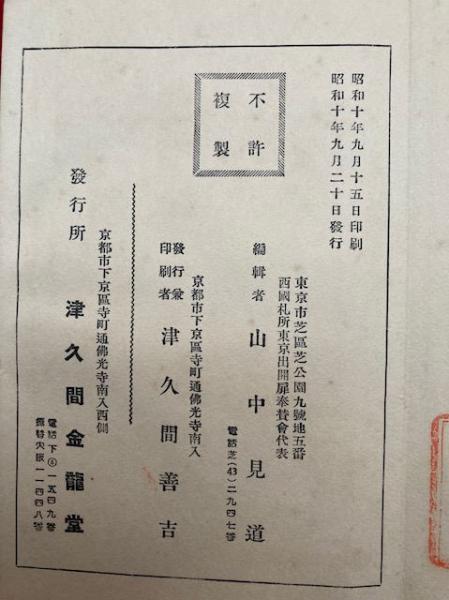 昭和十年九月十五日印刷
昭和十年九月二十日發行
不許
複製
東京市芝區芝公園九號地五番
西國札所東京出開扉奉賛會代表
編輯者 山中見道
電話芝(43)二九四七番
京都市下京區寺町通佛光寺南入
發行兼
印刷者 津久間善吉
京都市下京區寺町通佛光寺南入西側
發行所 津久間金龍堂
電話下④一五四九番
振替大阪一一四四八番